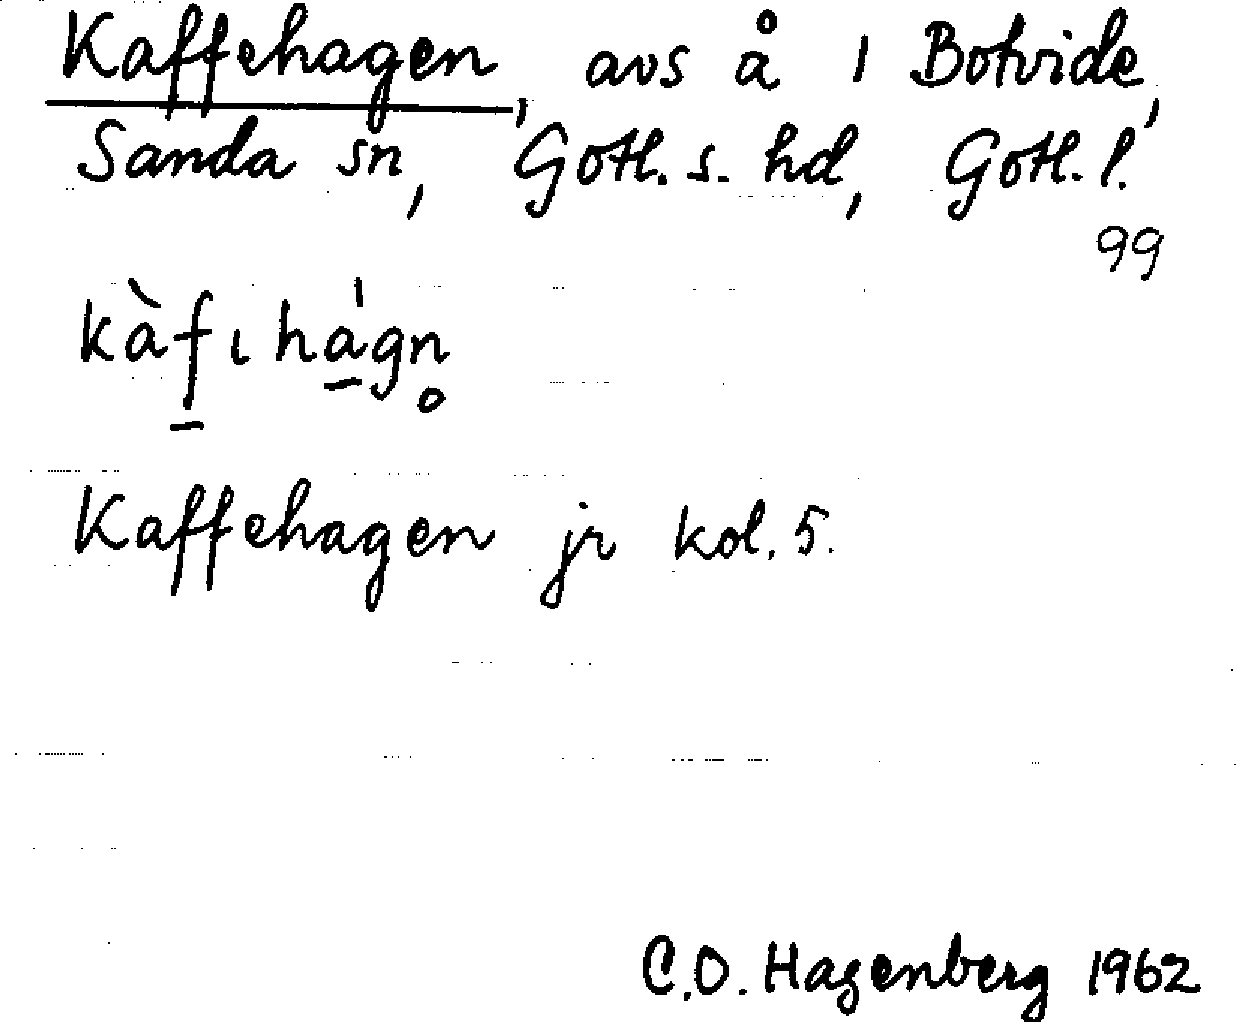 Kaffehagen, avs å 1 Botvide,
Sanda sn, Gotl. s. hd, Gotl. l.
99
kàf̱ıhá̱gn̥
Kaffehagen jr kol. 5.
C.O. Hagenberg 1962